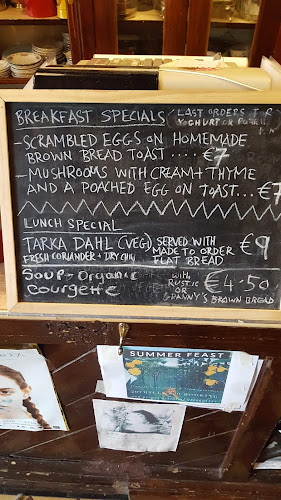 BREAKFAST SPECIALS
LAST ORDERS
YOGHURT OR
-SCRAMBLED EGGS ON HOMEMADE
BROWN BREAD TOAST .... €7
-MUSHROOMS WITH CREAM + THYME
AND A POACHED EGG ON TOAST... €7
LUNCH SPECIAL
TARKA DAHL (VEG) SERVED WITH €9
FRESH CORIANDER + DRY CHILI MADE TO ORDER
FLAT BREAD
Soup - Organic WITH €4.50
Courgette RUSTIC
OR
GRANNY'S BROWN BREAD
SUMMER FEAST